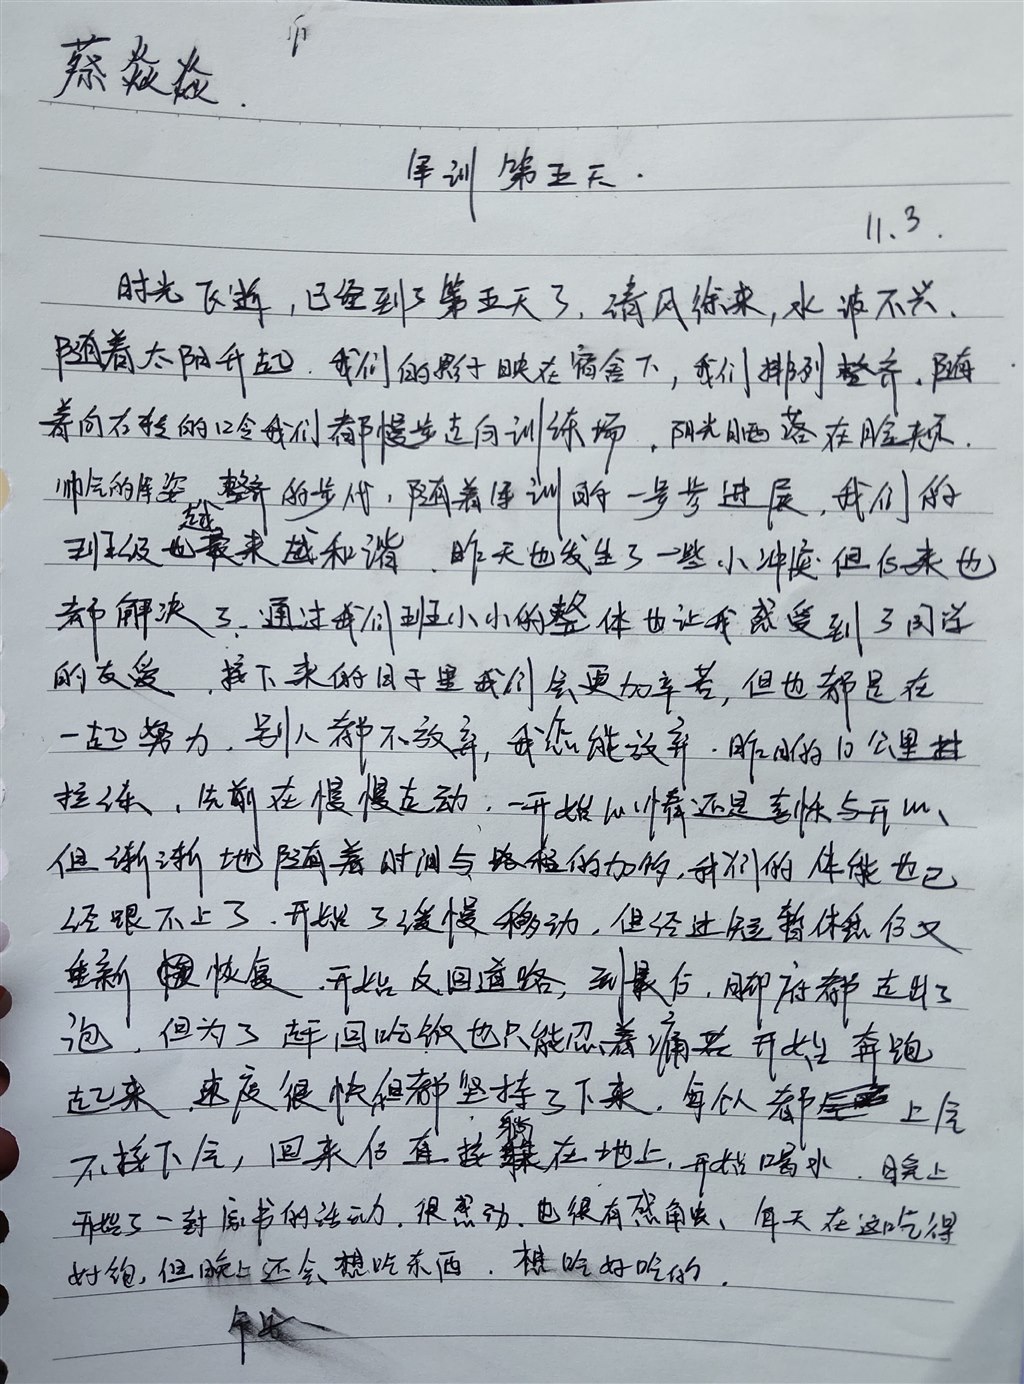 蔡焱焱.
军训第五天.
11.3.
时光飞逝,已经到了第五天了.清风徐来,水波不兴.
随着太阳升起.我们的影子映在宿舍下,我们排列整齐.随
着向右转的口令我们都慢步走向训练场.阳光晒落在脸颊.
帅气的军姿,整齐的步伐,随着军训的一步步进展,我们的
班级也越来越和谐.昨天也发生了一些小冲突但后来也
都解决了.通过我们班小小的整体也让我感受到了同学
的友爱.接下来的日子里我们会更加辛苦,但也都是在
一起努力.别人都不放弃,我怎能放弃.昨日的10公里
拉练,先前在慢慢走动.一开始心情还是喜悦与开心、
但渐渐地随着时间与路程的加多,我们的体能也已
经跟不上了.开始了缓慢移动,但经过短暂休息后又
重新恢复.开始反回道路,到最后,脚底都走出了
泡.但为了赶回吃饭也只能忍着痛苦开始奔跑
起来.速度很快但都坚持了下来.每个人都上气
不接下气,回来后直接躺在地上.开始喝水.晚上
开始了一封家书的活动.很感动.也很有感触、每天在这吃得
好饱,但晚上还会想吃东西.想吃好吃的.